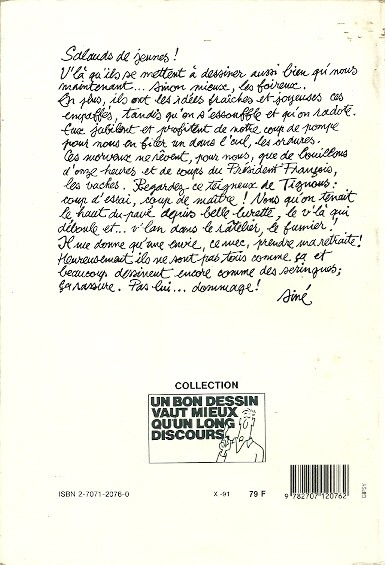 Salauds de jeunes !
V'là qu'ils se mettent à dessiner aussi bien qu'nous
maintenant... sinon mieux, les foireux.
En plus, ils ont les idées fraîches et joyeuses ces
empaffés, tandis qu'on s'essouffle et qu'on radote.
Eux jubilent et profitent de notre coup de pompe
pour nous en filer un dans l'cul, les ordures.
Ces morveux ne rêvent, pour nous, que de bouillons
d'onze heures et de coups du Président François,
les vaches. Regardez ce teigneux de Tignous :
coup d'essai, coup de maître ! Nous qu'on tenait
le haut du pavé depuis belle lurette, le v'là qui
déboule et... v'lan dans le ratelier, le fumier !
Il me donne qu'une envie, ce mec, prendre ma retraite !
Heureusement ils ne sont pas tous comme ça et
beaucoup dessinent encore comme des seringues ;
ça rassure. Pas lui... dommage !
Siné
COLLECTION
UN BON DESSIN
VAUT MIEUX
QU'UN LONG
DISCOURS
ISBN 2-7071-2076-0
X-91
79 F
9 782707 120762
GIPSY